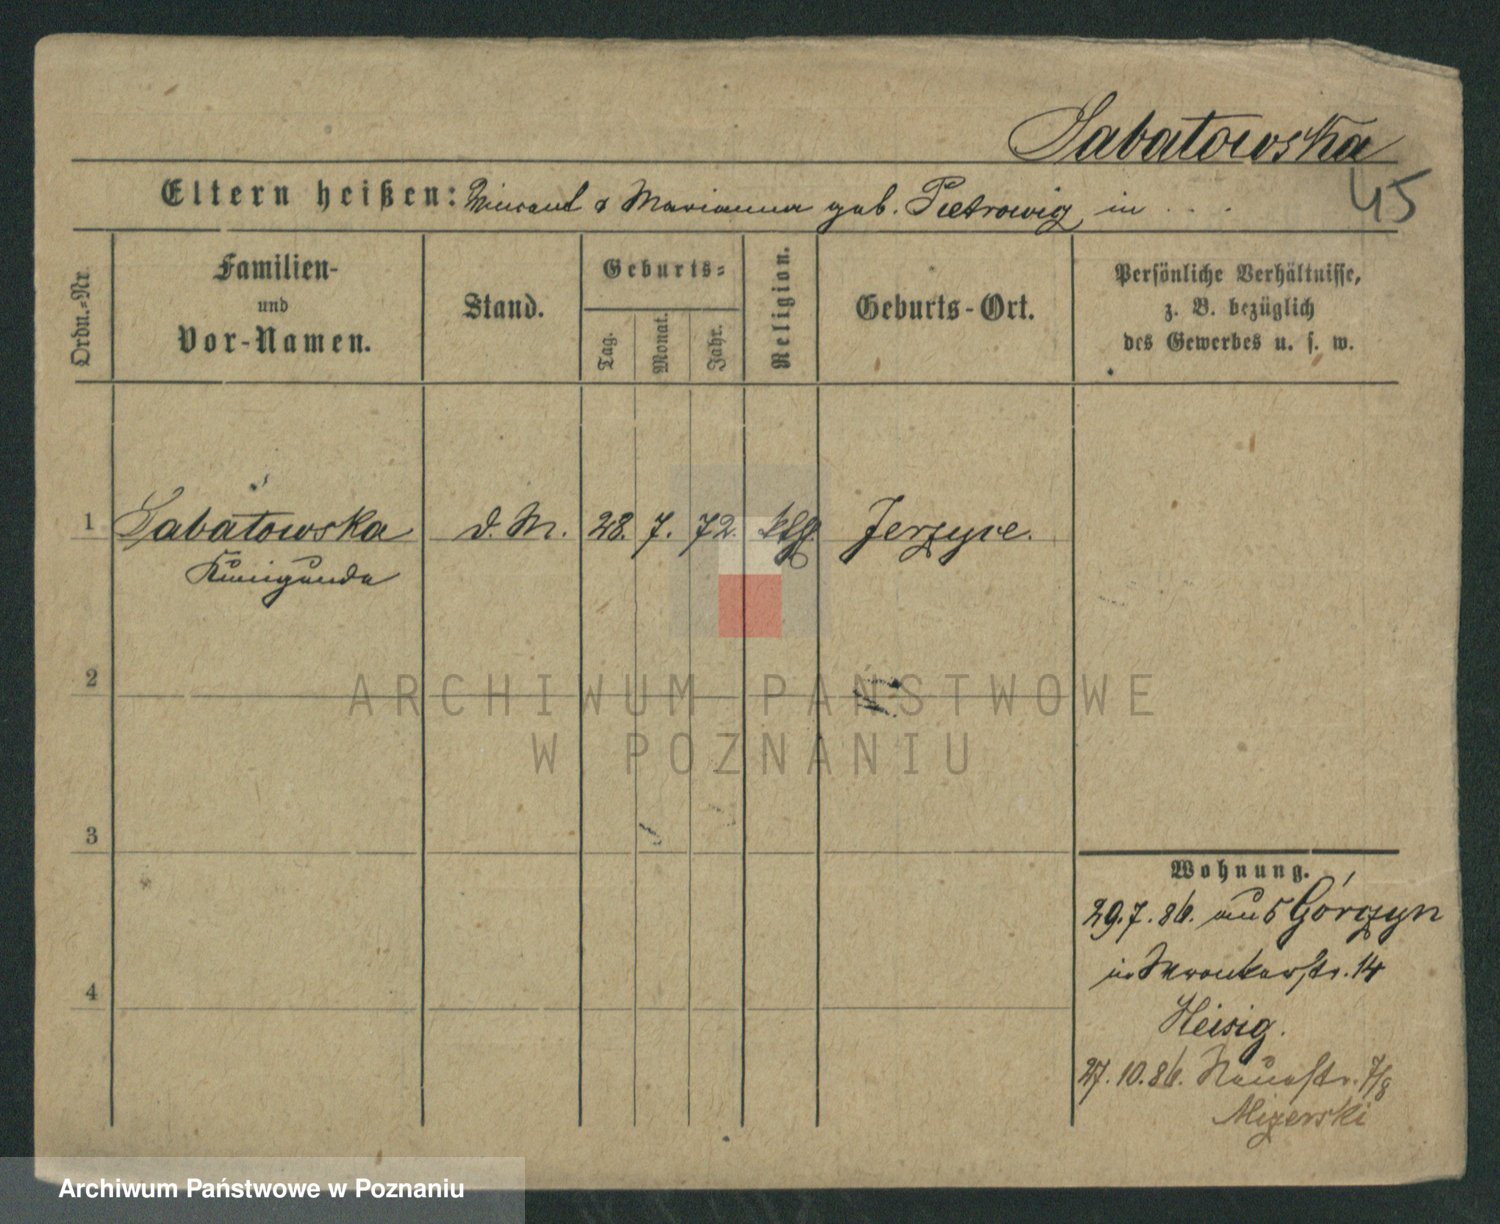 Sabatowska
45
Eltern heißen: Vincent & Marianna geb. Pietrowig in . . .
Ordn.-Nr.
Familien-
und
Vor-Namen.
Stand.
Geburts-
Tag.
Monat.
Jahr.
Religion.
Geburts-Ort.
Persönliche Verhältnisse,
z. B. bezüglich
des Gewerbes u. s. w.
1 Sabatowska d. M. 28. 7. 72. kth. Jerzyce.
Kunigunda
2
3
4
Wohnung.
29.7.86. aus Górczyn
in Wronkerstr. 14
Heisig.
27.10.86. Neuestr. 7/8
Mizerski
ARCHIWUM PAŃSTWOWE
W POZNANIU
Archiwum Państwowe w Poznaniu